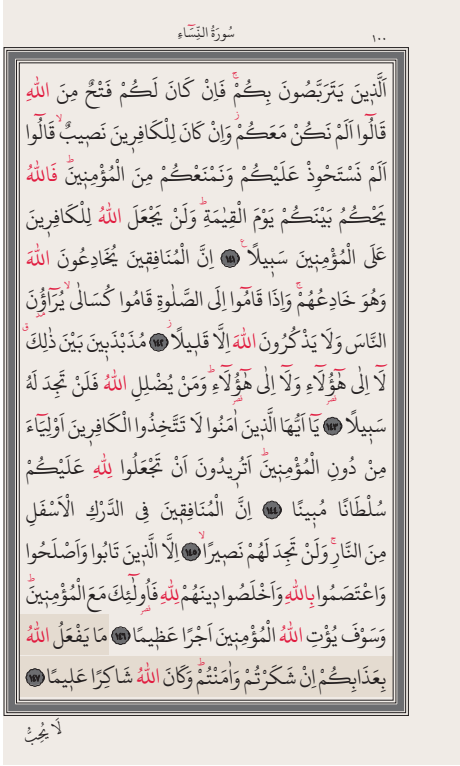 سُورَةُ النِّسَاءِ
١٠٠
اَلَّذ۪ينَ يَتَرَبَّصُونَ بِكُمْۚ فَاِنْ كَانَ لَكُمْ فَتْحٌ مِنَ اللّٰهِ
قَالُٓوا اَلَمْ نَكُنْ مَعَكُمْۘ وَاِنْ كَانَ لِلْكَافِر۪ينَ نَص۪يبٌۙ قَالُٓوا
اَلَمْ نَسْتَحْوِذْ عَلَيْكُمْ وَنَمْنَعْكُمْ مِنَ الْمُؤْمِن۪ينَۜ فَاللّٰهُ
يَحْكُمُ بَيْنَكُمْ يَوْمَ الْقِيٰمَةِۜ وَلَنْ يَجْعَلَ اللّٰهُ لِلْكَافِر۪ينَ
عَلَى الْمُؤْمِن۪ينَ سَب۪يلًا۟ ﴿١٤١﴾ اِنَّ الْمُنَافِق۪ينَ يُخَادِعُونَ اللّٰهَ
وَهُوَ خَادِعُهُمْۚ وَاِذَا قَامُٓوا اِلَى الصَّلٰوةِ قَامُوا كُسَالٰىۙ يُرَٓاؤُ۫نَ
النَّاسَ وَلَا يَذْكُرُونَ اللّٰهَ اِلَّا قَل۪يلًاۘ ﴿١٤٢﴾ مُذَبْذَب۪ينَ بَيْنَ ذٰلِكَۗ
لَٓا اِلٰى هٰٓؤُ۬لَٓاءِ وَلَٓا اِلٰى هٰٓؤُ۬لَٓاءِۜ وَمَنْ يُضْلِلِ اللّٰهُ فَلَنْ تَجِدَ لَهُ
سَب۪يلًا ﴿١٤٣﴾ يَٓا اَيُّهَا الَّذ۪ينَ اٰمَنُوا لَا تَتَّخِذُوا الْكَافِر۪ينَ اَوْلِيَٓاءَ
مِنْ دُونِ الْمُؤْمِن۪ينَۜ اَتُر۪يدُونَ اَنْ تَجْعَلُوا لِلّٰهِ عَلَيْكُمْ
سُلْطَانًا مُب۪ينًا ﴿١٤٤﴾ اِنَّ الْمُنَافِق۪ينَ فِي الدَّرْكِ الْاَسْفَلِ
مِنَ النَّارِۚ وَلَنْ تَجِدَ لَهُمْ نَص۪يرًاۙ ﴿١٤٥﴾ اِلَّا الَّذ۪ينَ تَابُوا وَاَصْلَحُوا
وَاعْتَصَمُوا بِاللّٰهِ وَاَخْلَصُوا د۪ينَهُمْ لِلّٰهِ فَاُو۬لٰٓئِكَ مَعَ الْمُؤْمِن۪ينَۜ
وَسَوْفَ يُؤْتِ اللّٰهُ الْمُؤْمِن۪ينَ اَجْرًا عَظ۪يمًا ﴿١٤٦﴾ مَا يَفْعَلُ اللّٰهُ
بِعَذَابِكُمْ اِنْ شَكَرْتُمْ وَاٰمَنْتُمْۜ وَكَانَ اللّٰهُ شَاكِرًا عَل۪يمًا ﴿١٤٧﴾
لَا يُحِبُّ